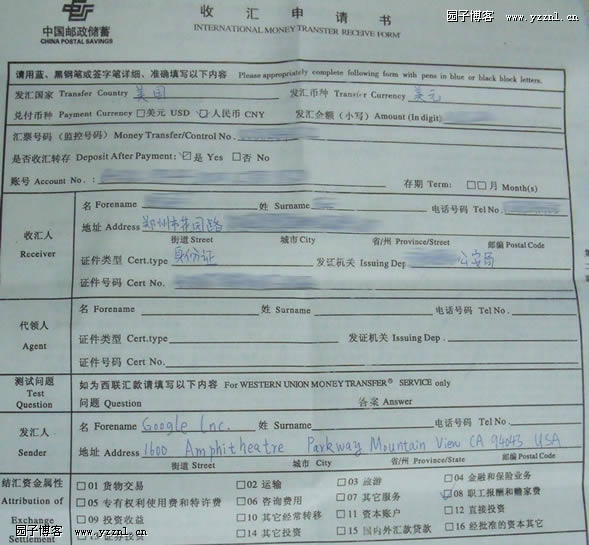 园子博客
www.yzznl.cn
中国邮政储蓄
CHINA POSTAL SAVINGS
收 汇 申 请 书
INTERNATIONAL MONEY TRANSFER RECEIVE FORM
请用蓝、黑钢笔或签字笔详细、准确填写以下内容 Please appropriately complete following form with pens in blue or black block letters.
发汇国家 Transfer Country 美国 发汇币种 Transfer Currency 美元
兑付币种 Payment Currency □美元 USD ☑人民币 CNY 发汇金额(小写) Amount (In digit)
汇票号码(监控号码) Money Transfer/Control No.
是否收汇转存 Deposit After Payment: ☑是 Yes □否 No
账号 Account No.: 存期 Term: □□月 Month(s)
收汇人 Receiver
名 Forename 姓 Surname 电话号码 Tel No.
地址 Address 郑州市花园路
街道 Street 城市 City 省/州 Province/Street 邮编 Postal Code
证件类型 Cert.type 身份证 发证机关 Issuing Dep 公安局
证件号码 Cert No.
代领人 Agent
名 Forename 姓 Surname 电话号码 Tel No.
证件类型 Cert.type 发证机关 Issuing Dep.
证件号码 Cert No.
测试问题 Test Question
如为西联汇款请填写以下内容 For WESTERN UNION MONEY TRANSFER® SERVICE only
问题 Question 答案 Answer
发汇人 Sender
名 Forename Google Inc. 姓 Surname 电话号码 Tel No.
地址 Address 1600 Amphitheatre Parkway Mountain View CA 94043 USA
街道 Street 城市 City 省/州 Province/State 邮编 Postal Code
结汇资金属性 Attribution of Exchange Settlement
□01 货物交易 □02 运输 □03 旅游 □04 金融和保险业务
□05 专有权利使用费和特许费 □06 咨询费用 □07 其它服务 ☑08 职工报酬和赡家费
□09 投资收益 □10 其它经常转移 □11 资本账户 □12 直接投资
□13 证券投资 □14 其它投资 □15 国内外汇贷款 □16 经批准的资本其它
园子博客
www.yzznl.cn
园子博客
www.yzznl.cn